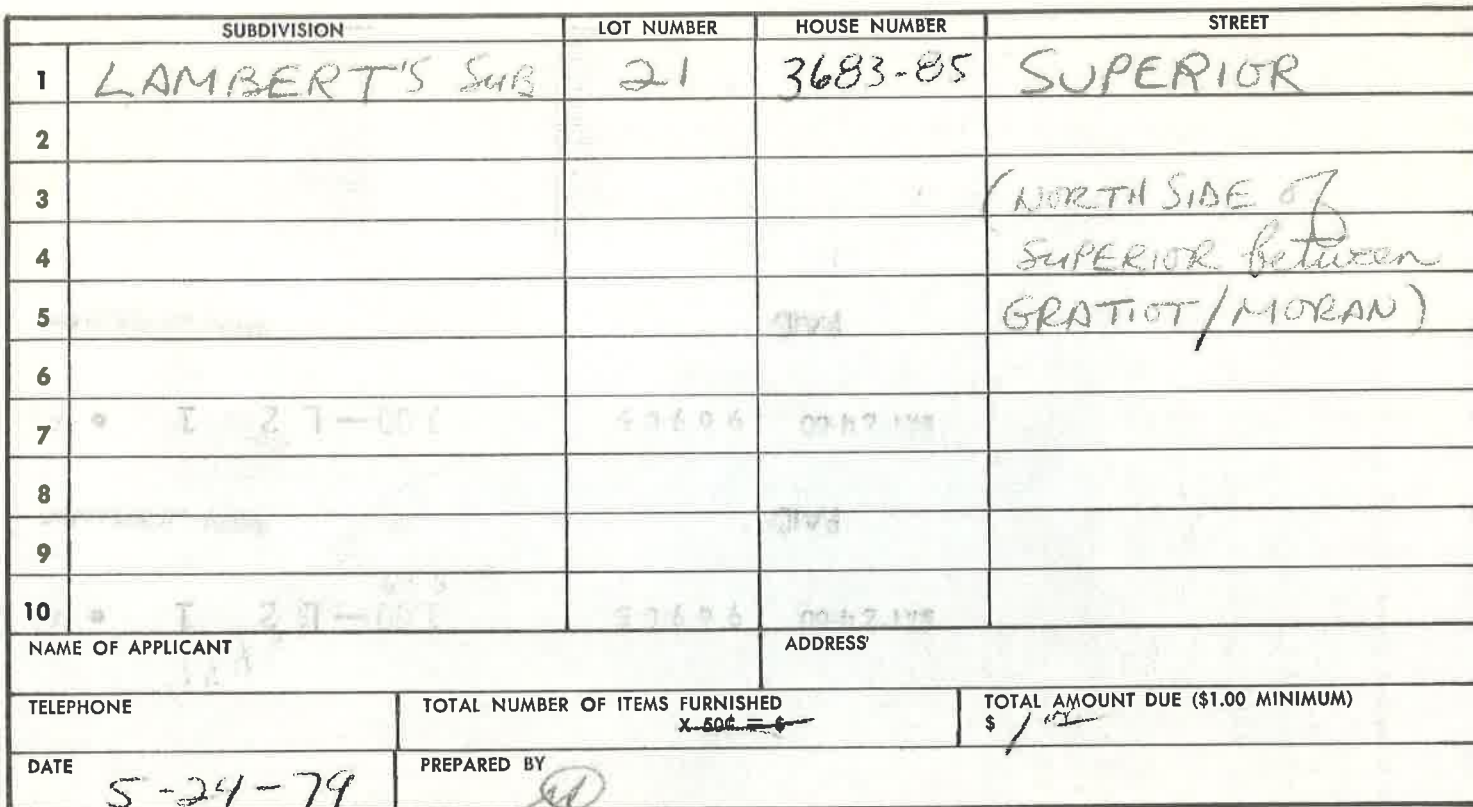 SUBDIVISION LOT NUMBER HOUSE NUMBER STREET
1 LAMBERT'S SUB 21 3683-85 SUPERIOR
2
3 (NORTH SIDE of
4 SUPERIOR between
5 GRATIOT/MORAN)
6
7
8
9
10
NAME OF APPLICANT ADDRESS'
TELEPHONE TOTAL NUMBER OF ITEMS FURNISHED TOTAL AMOUNT DUE ($1.00 MINIMUM)
X 50¢ = $ $ 1
DATE PREPARED BY
5-24-79